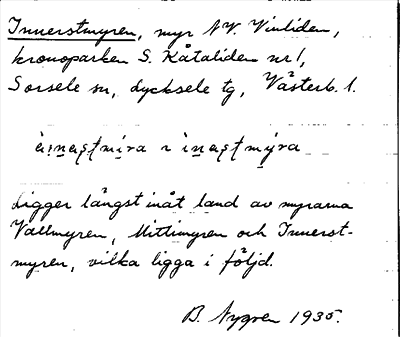 Innerstmyren, myr NV. Vinliden,
kronoparken S. Kåtaliden nr 1,
Sorsele sn, Lycksele tg, Västerb. l.
ị̀nəʂt mira ı ìnəʂt mýra
Ligger längst inåt land av myrarna
Vallmyren, Mittimyren och Innerst-
myren, vilka ligga i följd.
B. Nygren 1935.